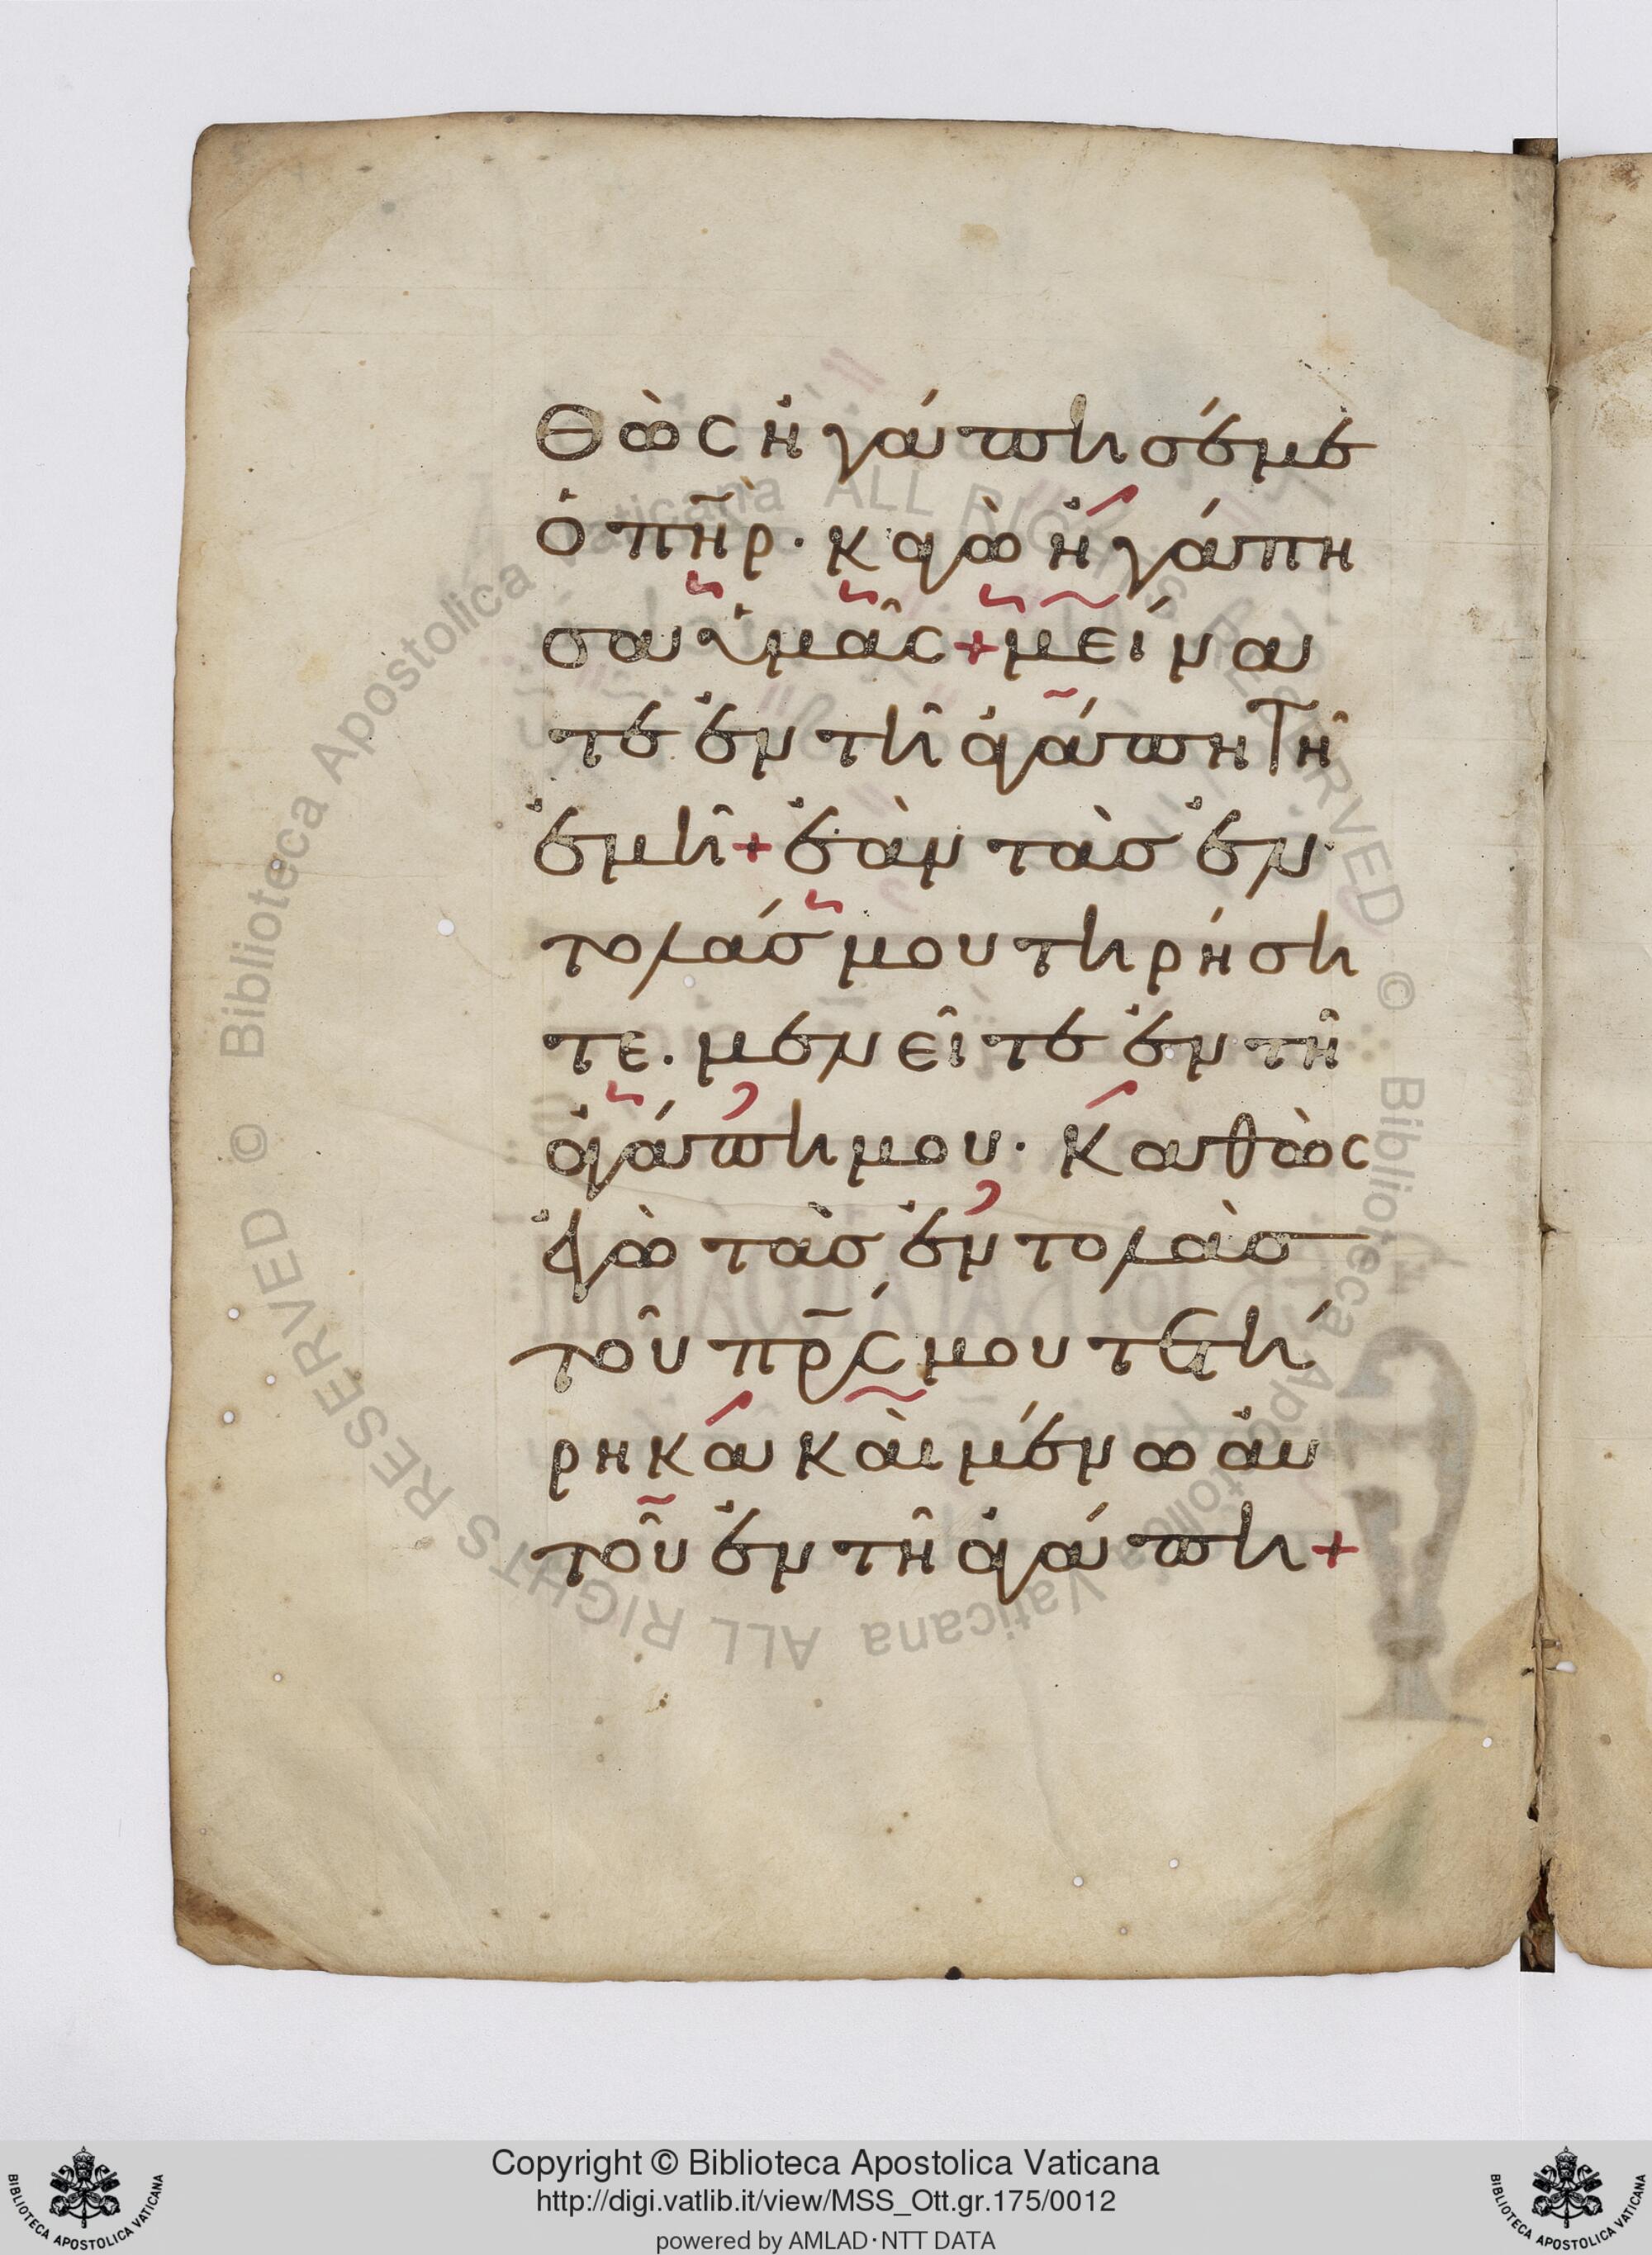 θὼς ἠγάπησέ με
ὁ πη̅ρ̀· κἀγὼ ἠγάπη
σα ὑμᾶς + μείνα
τε ἐν τῆ ἀγάπη τῆ
ἐμῆ + ἐὰν τὰς ἐν
τολάς μου τηρήση
τε. μενεῖτε ἐν τῆ
ἀγάπη μου· Καθὼς
ἐγὼ τὰς ἐντολὰς
τοῦ πρ̅ς μου τετή
ρηκα καὶ μένω αὐ
τοῦ ἐν τῆ ἀγάπη +
Biblioteca Apostolica Vaticana ALL RIGHTS RESERVED ©
Biblioteca Apostolica Vaticana ALL RIGHTS RESERVED ©
Copyright © Biblioteca Apostolica Vaticana
http://digi.vatlib.it/view/MSS_Ott.gr.175/0012
powered by AMLAD·NTT DATA
BIBLIOTECA APOSTOLICA VATICANA
BIBLIOTECA APOSTOLICA VATICANA